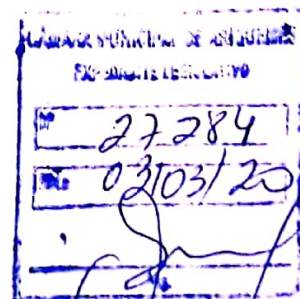 CÂMARA MUNICIPAL DE ARIQUEMES
EXPEDIENTE LEGISLATIVO
Nº 27284
03/03/20